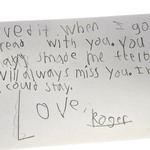 ved it when I go
read with you. You
always made me feel
will always miss you. I
could stay.
Love,
Roger